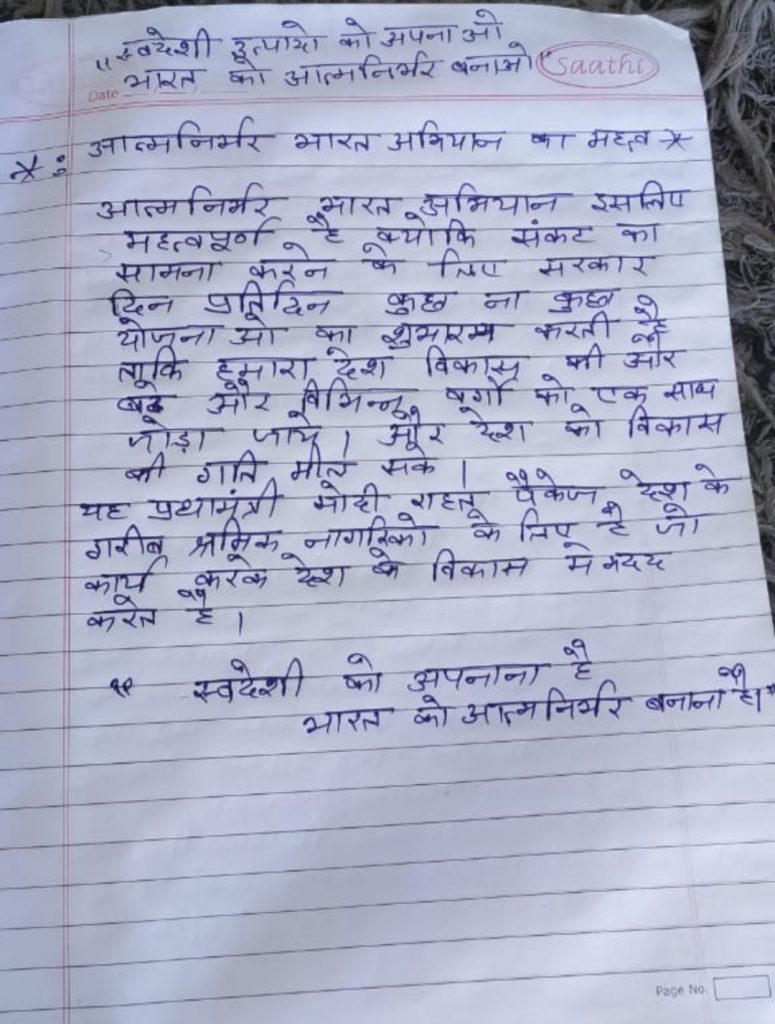 "स्वदेशी उत्पादो को अपनाओ
भारत को आत्मनिर्भर बनाओ"
Saathi
Date
*: आत्मनिर्भर भारत अभियान का महत्व *
आत्मनिर्भर भारत अभियान इसलिए
महत्वपूर्ण है क्योकि संकट का
सामना करने के लिए सरकार
दिन प्रतिदिन कुछ ना कुछ
योजनाओ का शुभारम्भ करती है
ताकि हमारा देश विकास की और
बढे और विभिन्न वर्गो को एक साथ
जोड़ा जाये । और देश को विकास
की गति मील सके ।
यह प्रधामंत्री मोदी राहत पैकेज देश के
गरीब श्रमिक नागरिको के लिए है जो
कार्य करके देश के विकास मे मदद
करते है ।
" स्वदेशी को अपनाना है
भारत को आत्मनिर्भर बनाना है।"
Page No.